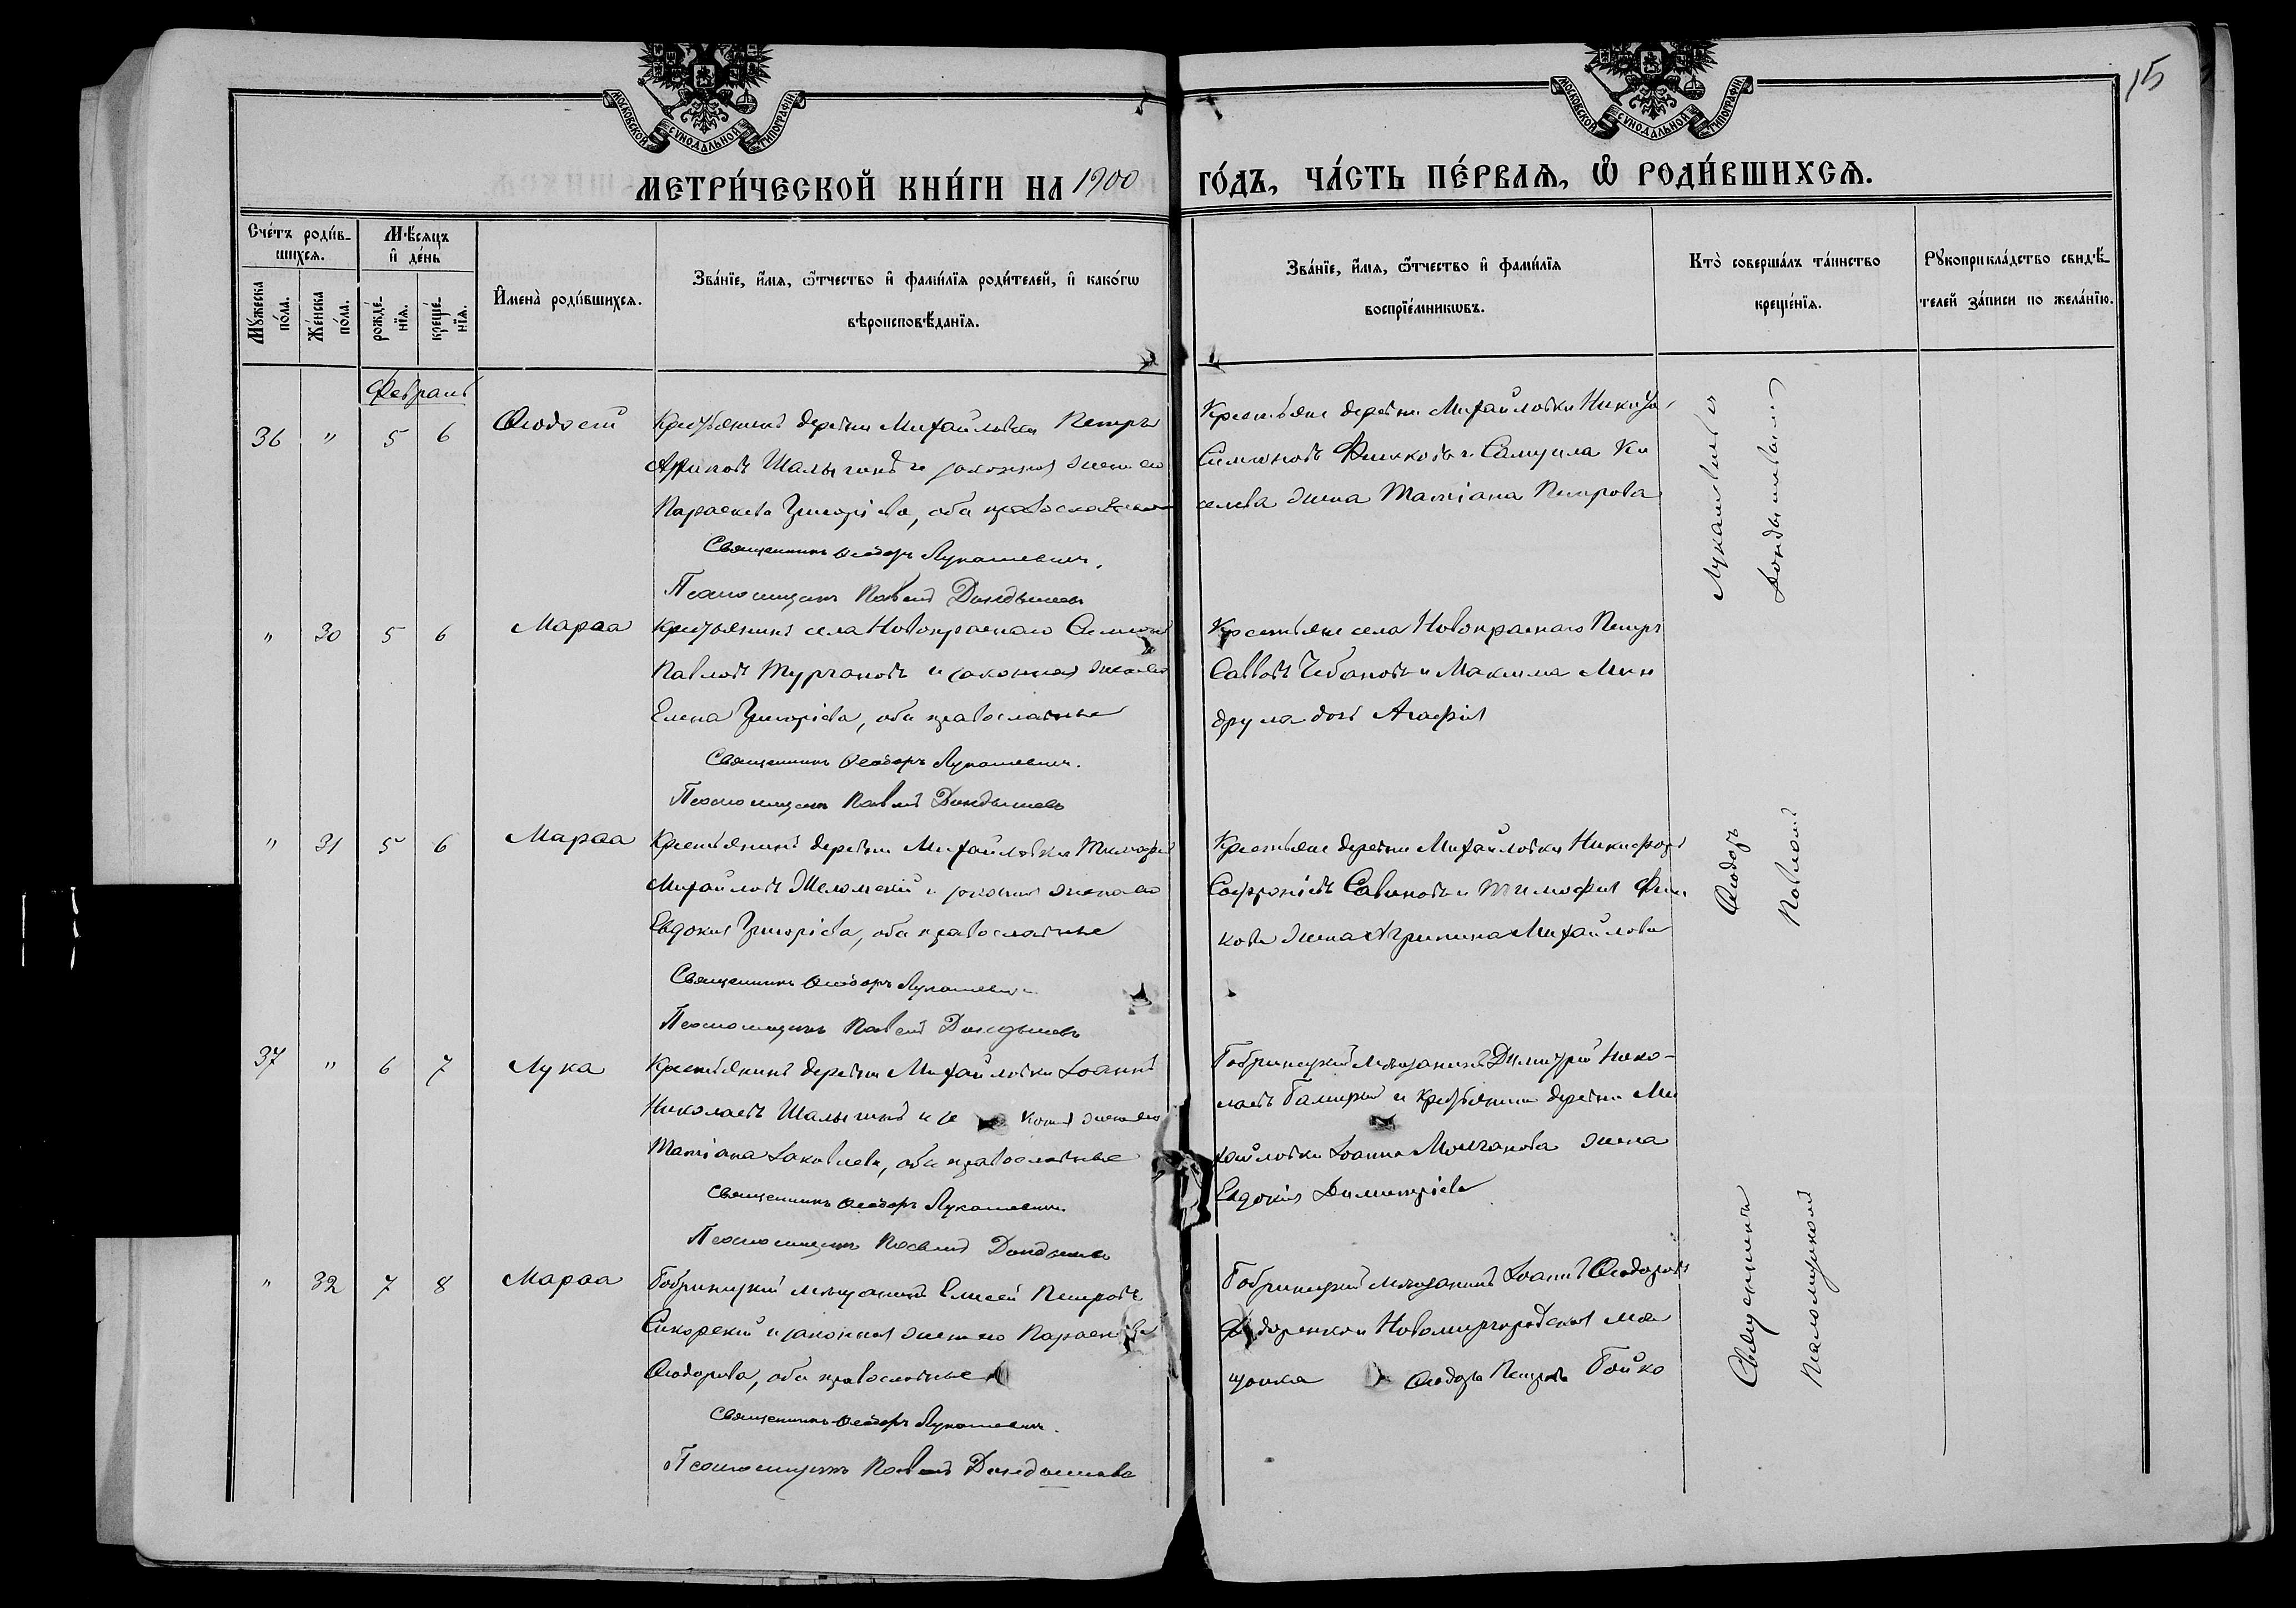 МОСКОВСКОЙ СУНОДАЛЬНОЙ ТИПОГРАФІИ
МОСКОВСКОЙ СУНОДАЛЬНОЙ ТИПОГРАФІИ
15
МЕТРИ́ЧЕСКОЙ КНИ́ГИ НА 1900 ГО́ДЪ, ЧА́СТЬ ПЕ́РВАѦ, Ѡ҆ РОДИ́ВШИХСѦ.
Сче́тъ роди́в-
шихсѧ.
Мꙋ́жеска по́ла.
Же́нска по́ла.
Мѣ́сяцъ и҆ де́нь
рожде́-нїѧ.
креще́-нїѧ.
И҆мена̀ роди́вшихсѧ.
Зва́нїе, и҆́мѧ, ѻ҆́тчество и҆ фами́лїѧ роди́телей, и҆ како́гѡ
вѣроисповѣ́данїѧ.
Зва́нїе, и҆́мѧ, ѻ҆́тчество и҆ фами́лїѧ
воспрїе́мникѡвъ.
Кто̀ соверша́лъ та́инство
креще́нїѧ.
Рꙋкоприкла́дство свидѣ́-
телей за́писи по жела́нїю.
Февраль
36 " 5 6 Ѳеодосій
Крестьянинъ деревни Михайловки Петръ
Шалыгинъ и законная жена его
Параскева Григоріева, оба православные
Священникъ Ѳеодоръ Лукашевич.
Псаломщикъ Павелъ Дондышевъ
Крестьяне деревни Михайловки Никита
Симоновъ и Самуила Ки
селева жена Татіана Петрова
" 30 5 6 Марѳа
Крестьянинъ села Новокраснаго Симеонъ
Павловъ Турчановъ и законная жена его
Елена Григоріева, оба православные
Священникъ Ѳеодоръ Лукашевич.
Псаломщикъ Павелъ Дондышевъ
Крестьяне села Новокраснаго Петръ
Саввовъ Чебановъ и Максима Мин
друла дочь Агафія
" 31 5 6 Марѳа
Крестьянинъ деревни Михайловки Тимофей
Михайловъ Шеломскій и законная жена его
Евдокія Григоріева, оба православные
Священникъ Ѳеодоръ Лукашевич
Псаломщикъ Павелъ Дондышевъ
Крестьяне деревни Михайловки Никифоръ
Софроніевъ Савиновъ и Тимофея Фин
кова жена Агрипина Михайлова
37 " 6 7 Лука
Крестьянинъ деревни Михайловки Іоаннъ
Николаевъ Шалыгинъ и за конная жена его
Татіана Іаковлева, оба православные
Священникъ Ѳеодоръ Лукашевич.
Псаломщикъ Павелъ Дондышевъ
Бобринецкій мѣщанинъ Димитрій Нико-
лаевъ и крестьянина деревни Ми
хайловки Іоанна Молчанова жена
Евдокія Димитріева
" 32 7 8 Марѳа
Бобринецкій мѣщанинъ Елисей Петровъ
Сикорскій и законная жена его Параскева
Ѳеодорова, оба православные
Священникъ Ѳеодоръ Лукашевич.
Псаломщикъ Павелъ Дондышевъ
Бобринецкій мѣщанинъ Іоаннъ Ѳеодоровъ
Федоренко и Новомиргородская мѣ
щанка Петрова Бойко
Священникъ Ѳеодоръ Лукашевичъ и
Псаломщикомъ Павломъ Дондышевымъ